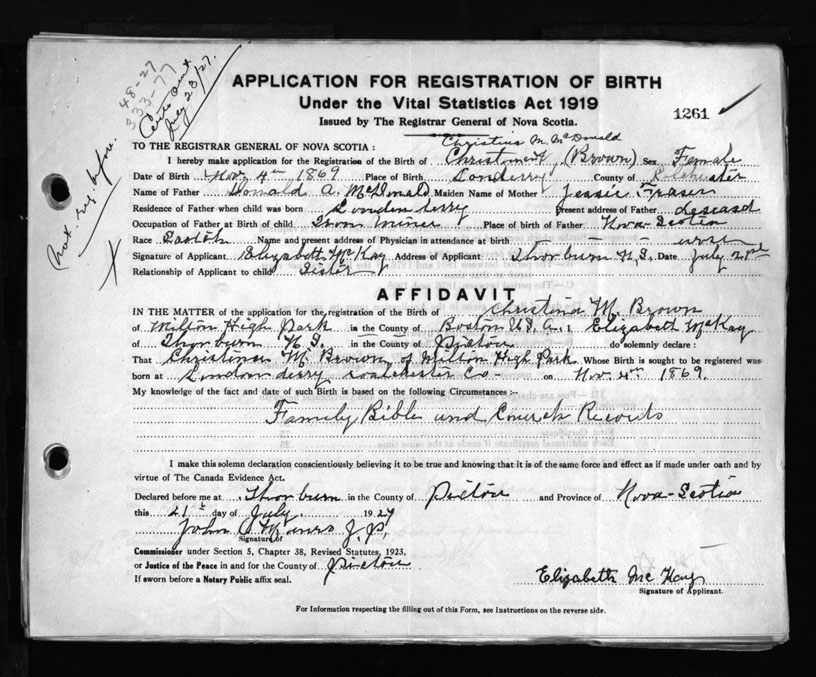 48-27
333-77
Certs Out
July 23/27.
Not reg. before.
APPLICATION FOR REGISTRATION OF BIRTH
Under the Vital Statistics Act 1919
1261
Issued by The Registrar General of Nova Scotia.
Christina M. McDonald
TO THE REGISTRAR GENERAL OF NOVA SCOTIA :
I hereby make application for the Registration of the Birth of (Brown) Sex Female
Date of Birth Nov 4th 1869 Place of Birth Londerry County of Colchester
Name of Father Donald A. McDonald Maiden Name of Mother Jessie Fraser
Residence of Father when child was born Londonderry Present address of Father
Occupation of Father at Birth of child Iron Miner Place of birth of Father Nova-Scotia
Race Name and present address of Physician in attendance at birth
Signature of Applicant Elizabeth McKay Address of Applicant Thorburn N.S. Date July 21st
Relationship of Applicant to child Sister
AFFIDAVIT
IN THE MATTER of the application for the registration of the Birth of Christina M. Brown
of Milton High Park in the County of Boston U.S.A. I, Elizabeth McKay
of Thorburn N.S. in the County of Pictou do solemnly declare :
That Christina M. Brown of Milton High Park Whose Birth is sought to be registered was
born at Londonderry Co- on Nov. 4th 1869.
My knowledge of the fact and date of such Birth is based on the following Circumstances :-
Family Bible and Church Records
I make this solemn declaration conscientiously believing it to be true and knowing that it is of the same force and effect as if made under oath and by
virtue of The Canada Evidence Act.
Declared before me at Thorburn in the County of Pictou and Province of Nova-Scotia
this 21st day of July 1927
John Munro J.P.
Signature of
Commissioner under Section 5, Chapter 38, Revised Statutes, 1923.
or Justice of the Peace in and for the County of Pictou
If sworn before a Notary Public affix seal.
Elizabeth McKay
Signature of Applicant.
For Information respecting the filling out of this Form, see Instructions on the reverse side.